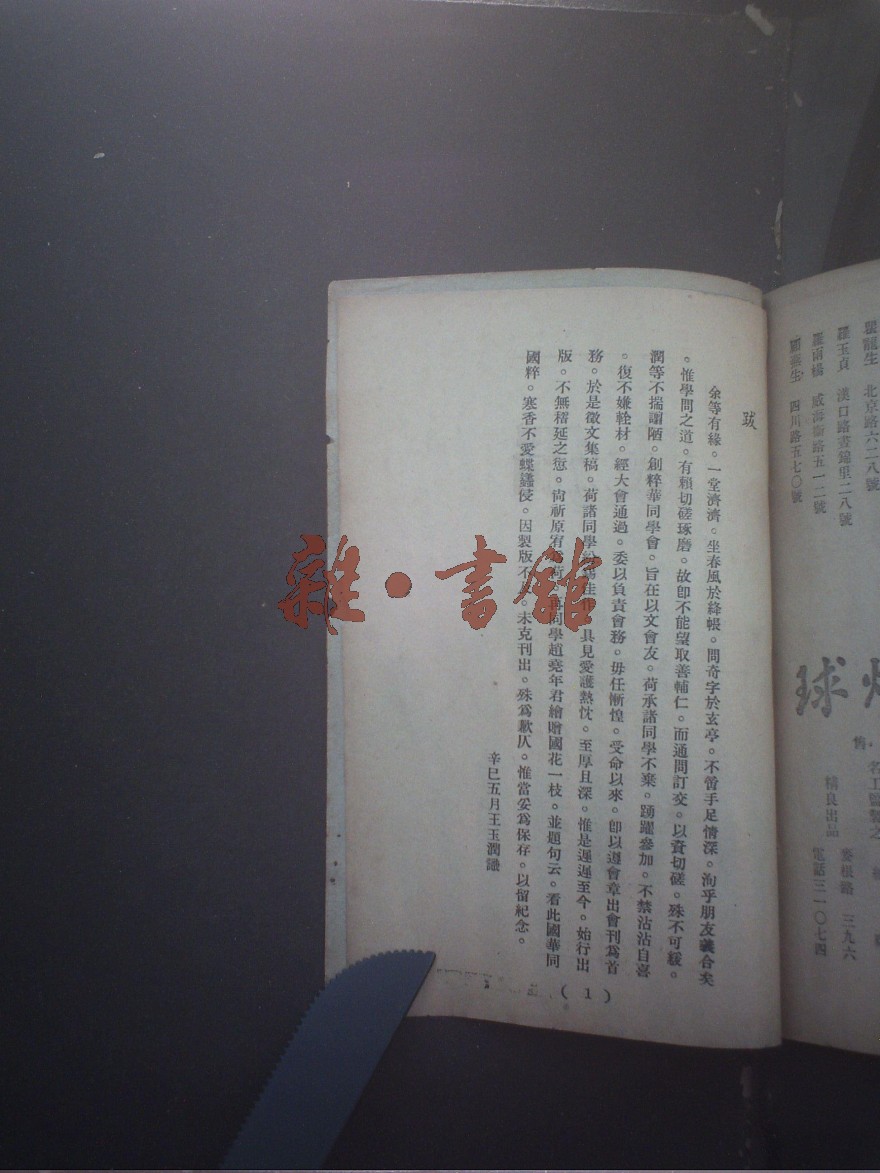 跋
余等有緣。一堂濟濟。坐春風於絳帳。問奇字於玄亭。不啻手足情深。洵乎朋友義合矣
。惟學問之道。有賴切磋琢磨。故卽不能望取善輔仁。而通問訂交。以資切磋。殊不可緩。
潤等不揣謭陋。創粹華同學會。旨在以文會友。荷承諸同學不棄。踴躍參加。不禁沾沾自喜
。復不嫌輇材。經大會通過。委以負責會務。毋任慚惶。受命以來。卽以遵會章出會刊爲首
務。於是徵文集稿。荷諸同學紛錫佳 具見愛護熱忱。至厚且深。惟是遲遲至今。始行出
版。不無稽延之愆。尙祈原宥 同學趙堯年君繪贈國花一枝。並題句云。看此國華同
國粹。寒香不愛蝶蠭侵。因製版不 未克刊出。殊爲歉仄。惟當妥爲保存。以留紀念。
辛巳五月王玉潤識
(1)
雜·書館
龍生 北京路六二八號
羅玉貞 漢口路晝錦里二八號
羅雨 威海衞路五一二號
生 四川路五七〇號
球
售
名工監製之
精良出品
麥根路 三九六
電話三一〇七四